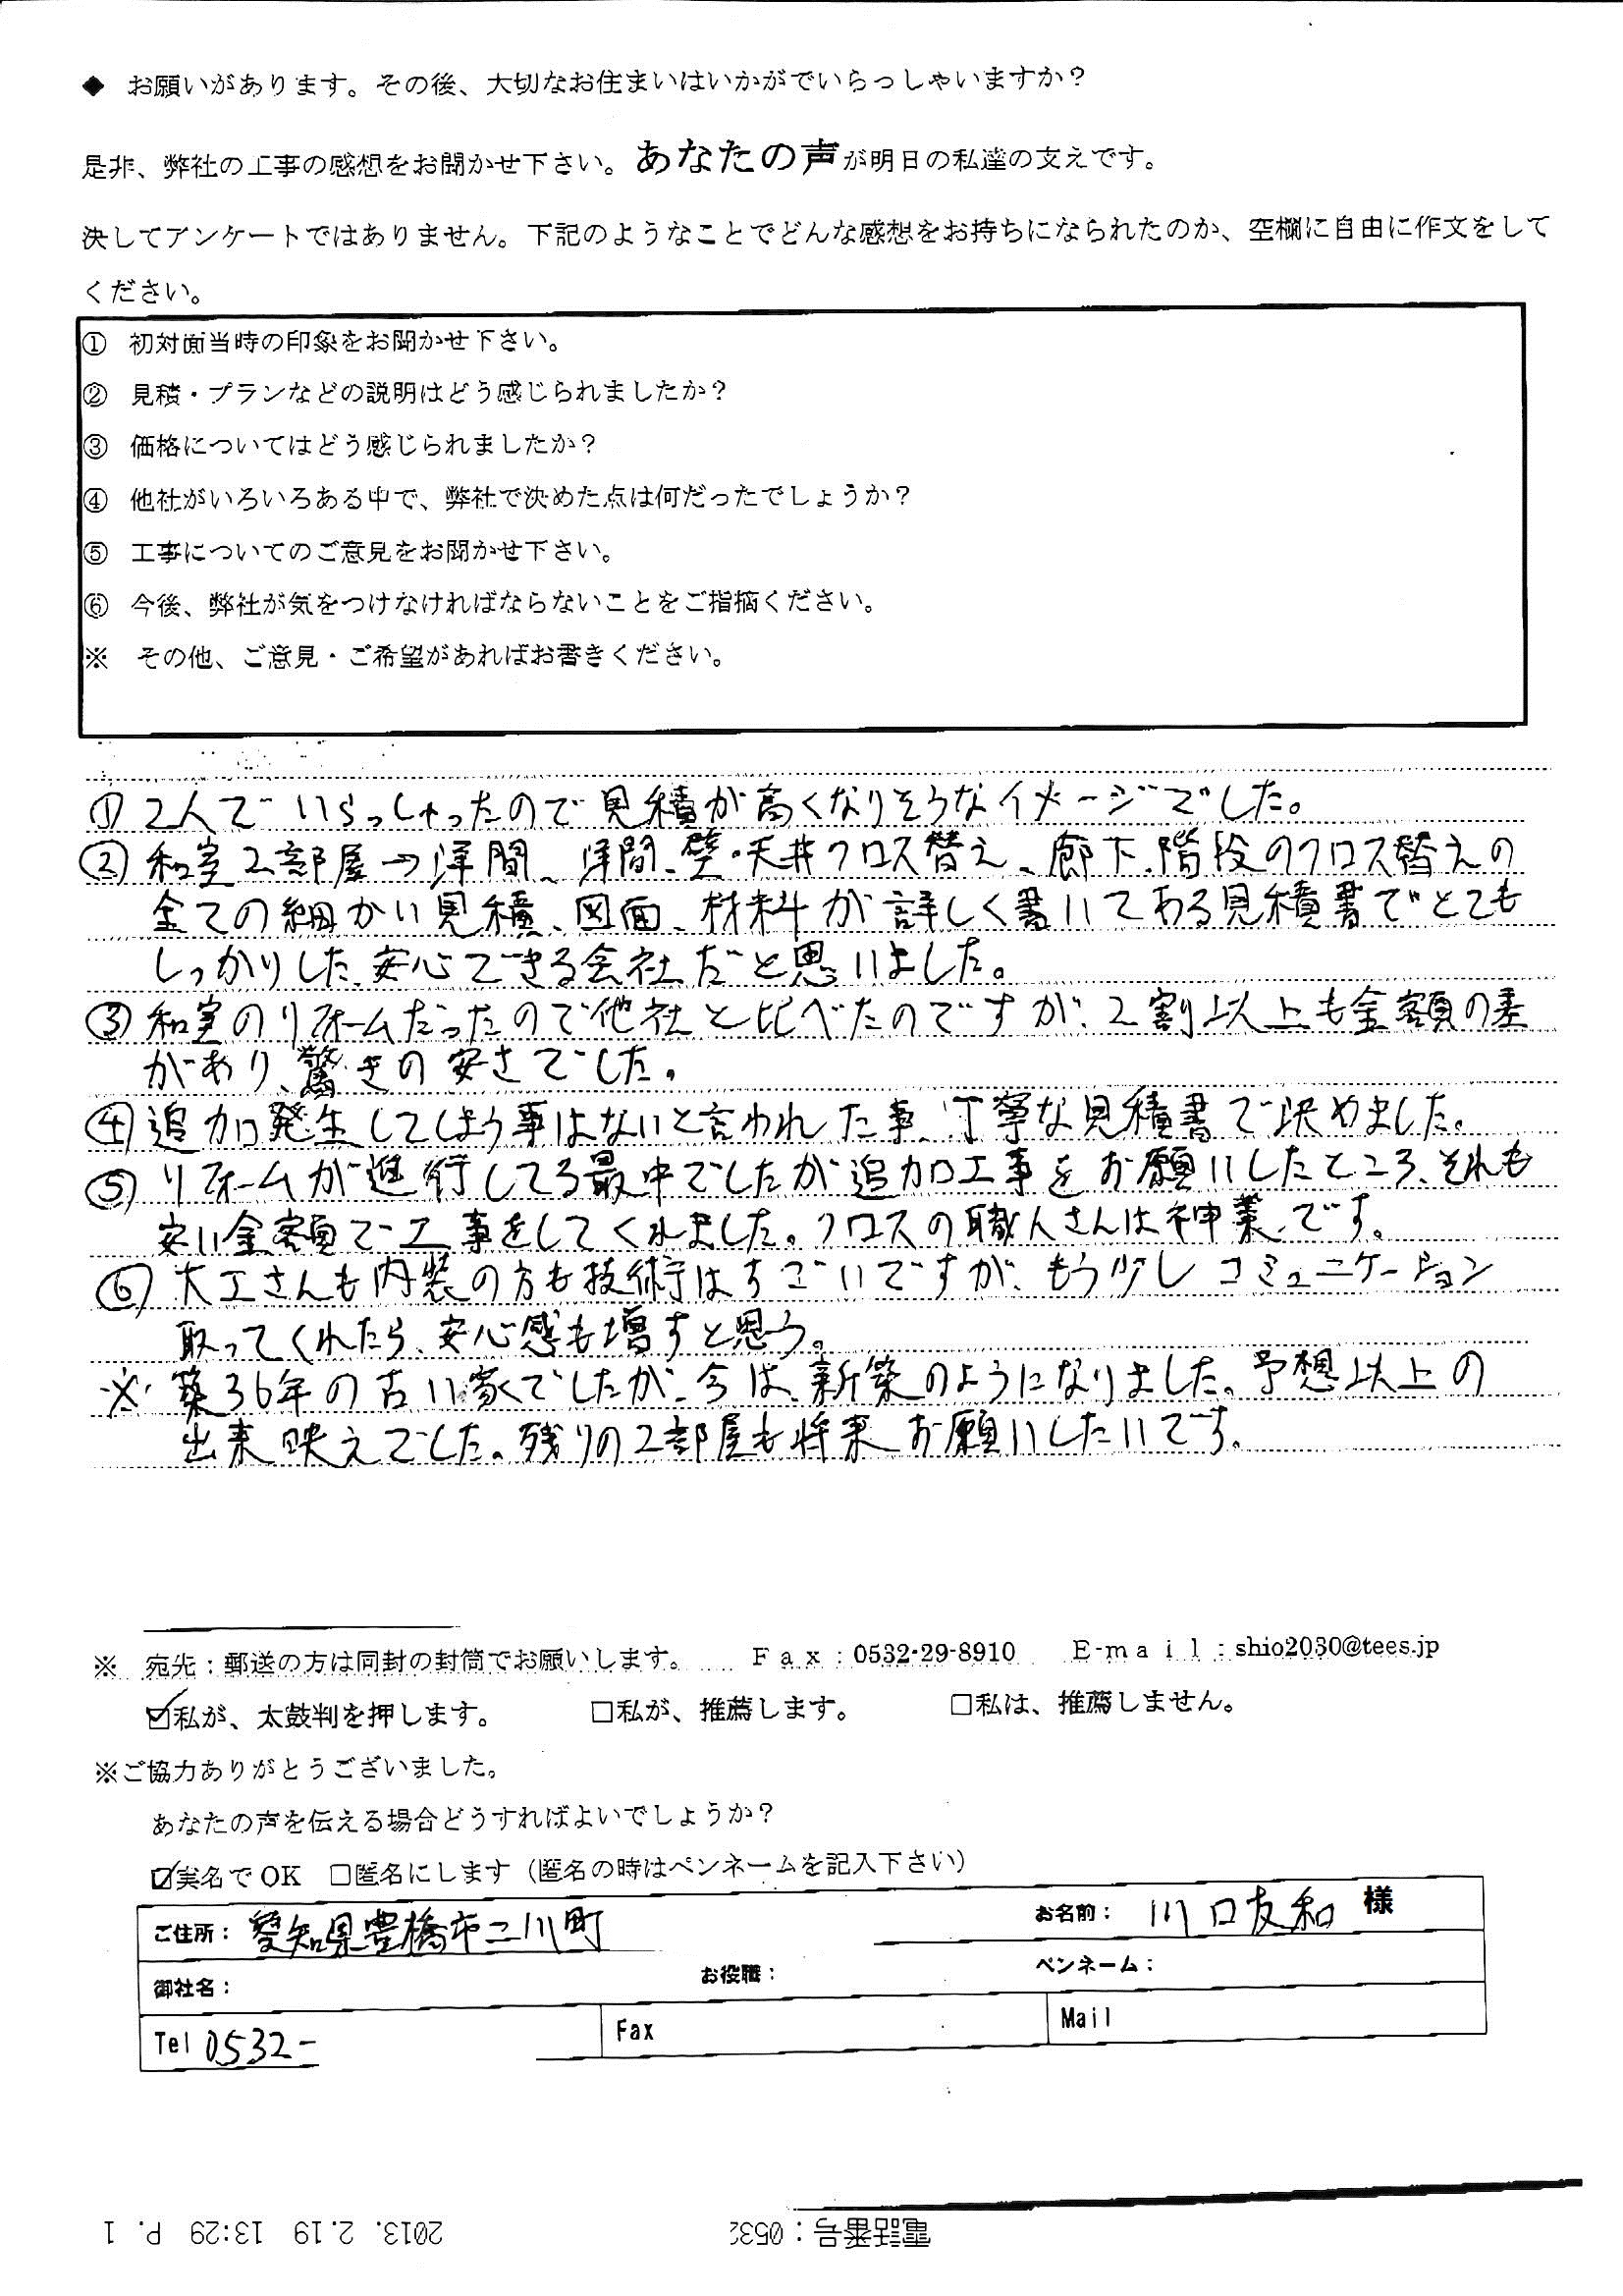 ◆ お願いがあります。その後、大切なお住まいはいかがでいらっしゃいますか？
是非、弊社の工事の感想をお聞かせ下さい。あなたの声が明日の私達の支えです。
決してアンケートではありません。下記のようなことでどんな感想をお持ちになられたのか、空欄に自由に作文をして
ください。
① 初対面当時の印象をお聞かせ下さい。
② 見積・プランなどの説明はどう感じられましたか？
③ 価格についてはどう感じられましたか？
④ 他社がいろいろある中で、弊社で決めた点は何だったでしょうか？
⑤ 工事についてのご意見をお聞かせ下さい。
⑥ 今後、弊社が気をつけなければならないことをご指摘ください。
※ その他、ご意見・ご希望があればお書きください。
① 2人でいらっしゃったので見積が高くなりそうなイメージでした。
② 和室2部屋→洋間、洋間、壁・天井クロス替え、廊下、階段のクロス替えの
全ての細かい見積、図面、材料が詳しく書いてある見積書でとても
しっかりした、安心できる会社だと思いました。
③ 和室のリフォームだったので他社と比べたのですが、2割以上も金額の差
があり、驚きの安さでした。
④ 追加発生してしまう事はないと言われた事、丁寧な見積書で決めました。
⑤ リフォームが進行してる最中でしたが追加工事をお願いしたところ、それも
安い金額で工事をしてくれました。クロスの職人さんは神業、です。
⑥ 大工さんも内装の方も技術はすごいですが、もう少しコミュニケーション
取ってくれたら、安心感も増すと思う。
※ 築36年の古い家でしたが、今は、新築のようになりました。予想以上の
出来映えでした。残りの2部屋も将来お願いしたいです。
※ 宛先：郵送の方は同封の封筒でお願いします。 Fax：0532-29-8910 E-mail：shio2030@tees.jp
☑私が、太鼓判を押します。 □私が、推薦します。 □私は、推薦しません。
※ご協力ありがとうございました。
あなたの声を伝える場合どうすればよいでしょうか？
☑実名でOK □匿名にします（匿名の時はペンネームを記入下さい）
ご住所： 愛知県豊橋市二川町 お名前： 川口友和 様
御社名： お役職： ペンネーム：
Tel 0532- Fax Mail
電話番号：053 2013. 2.19 13:29 P. 1